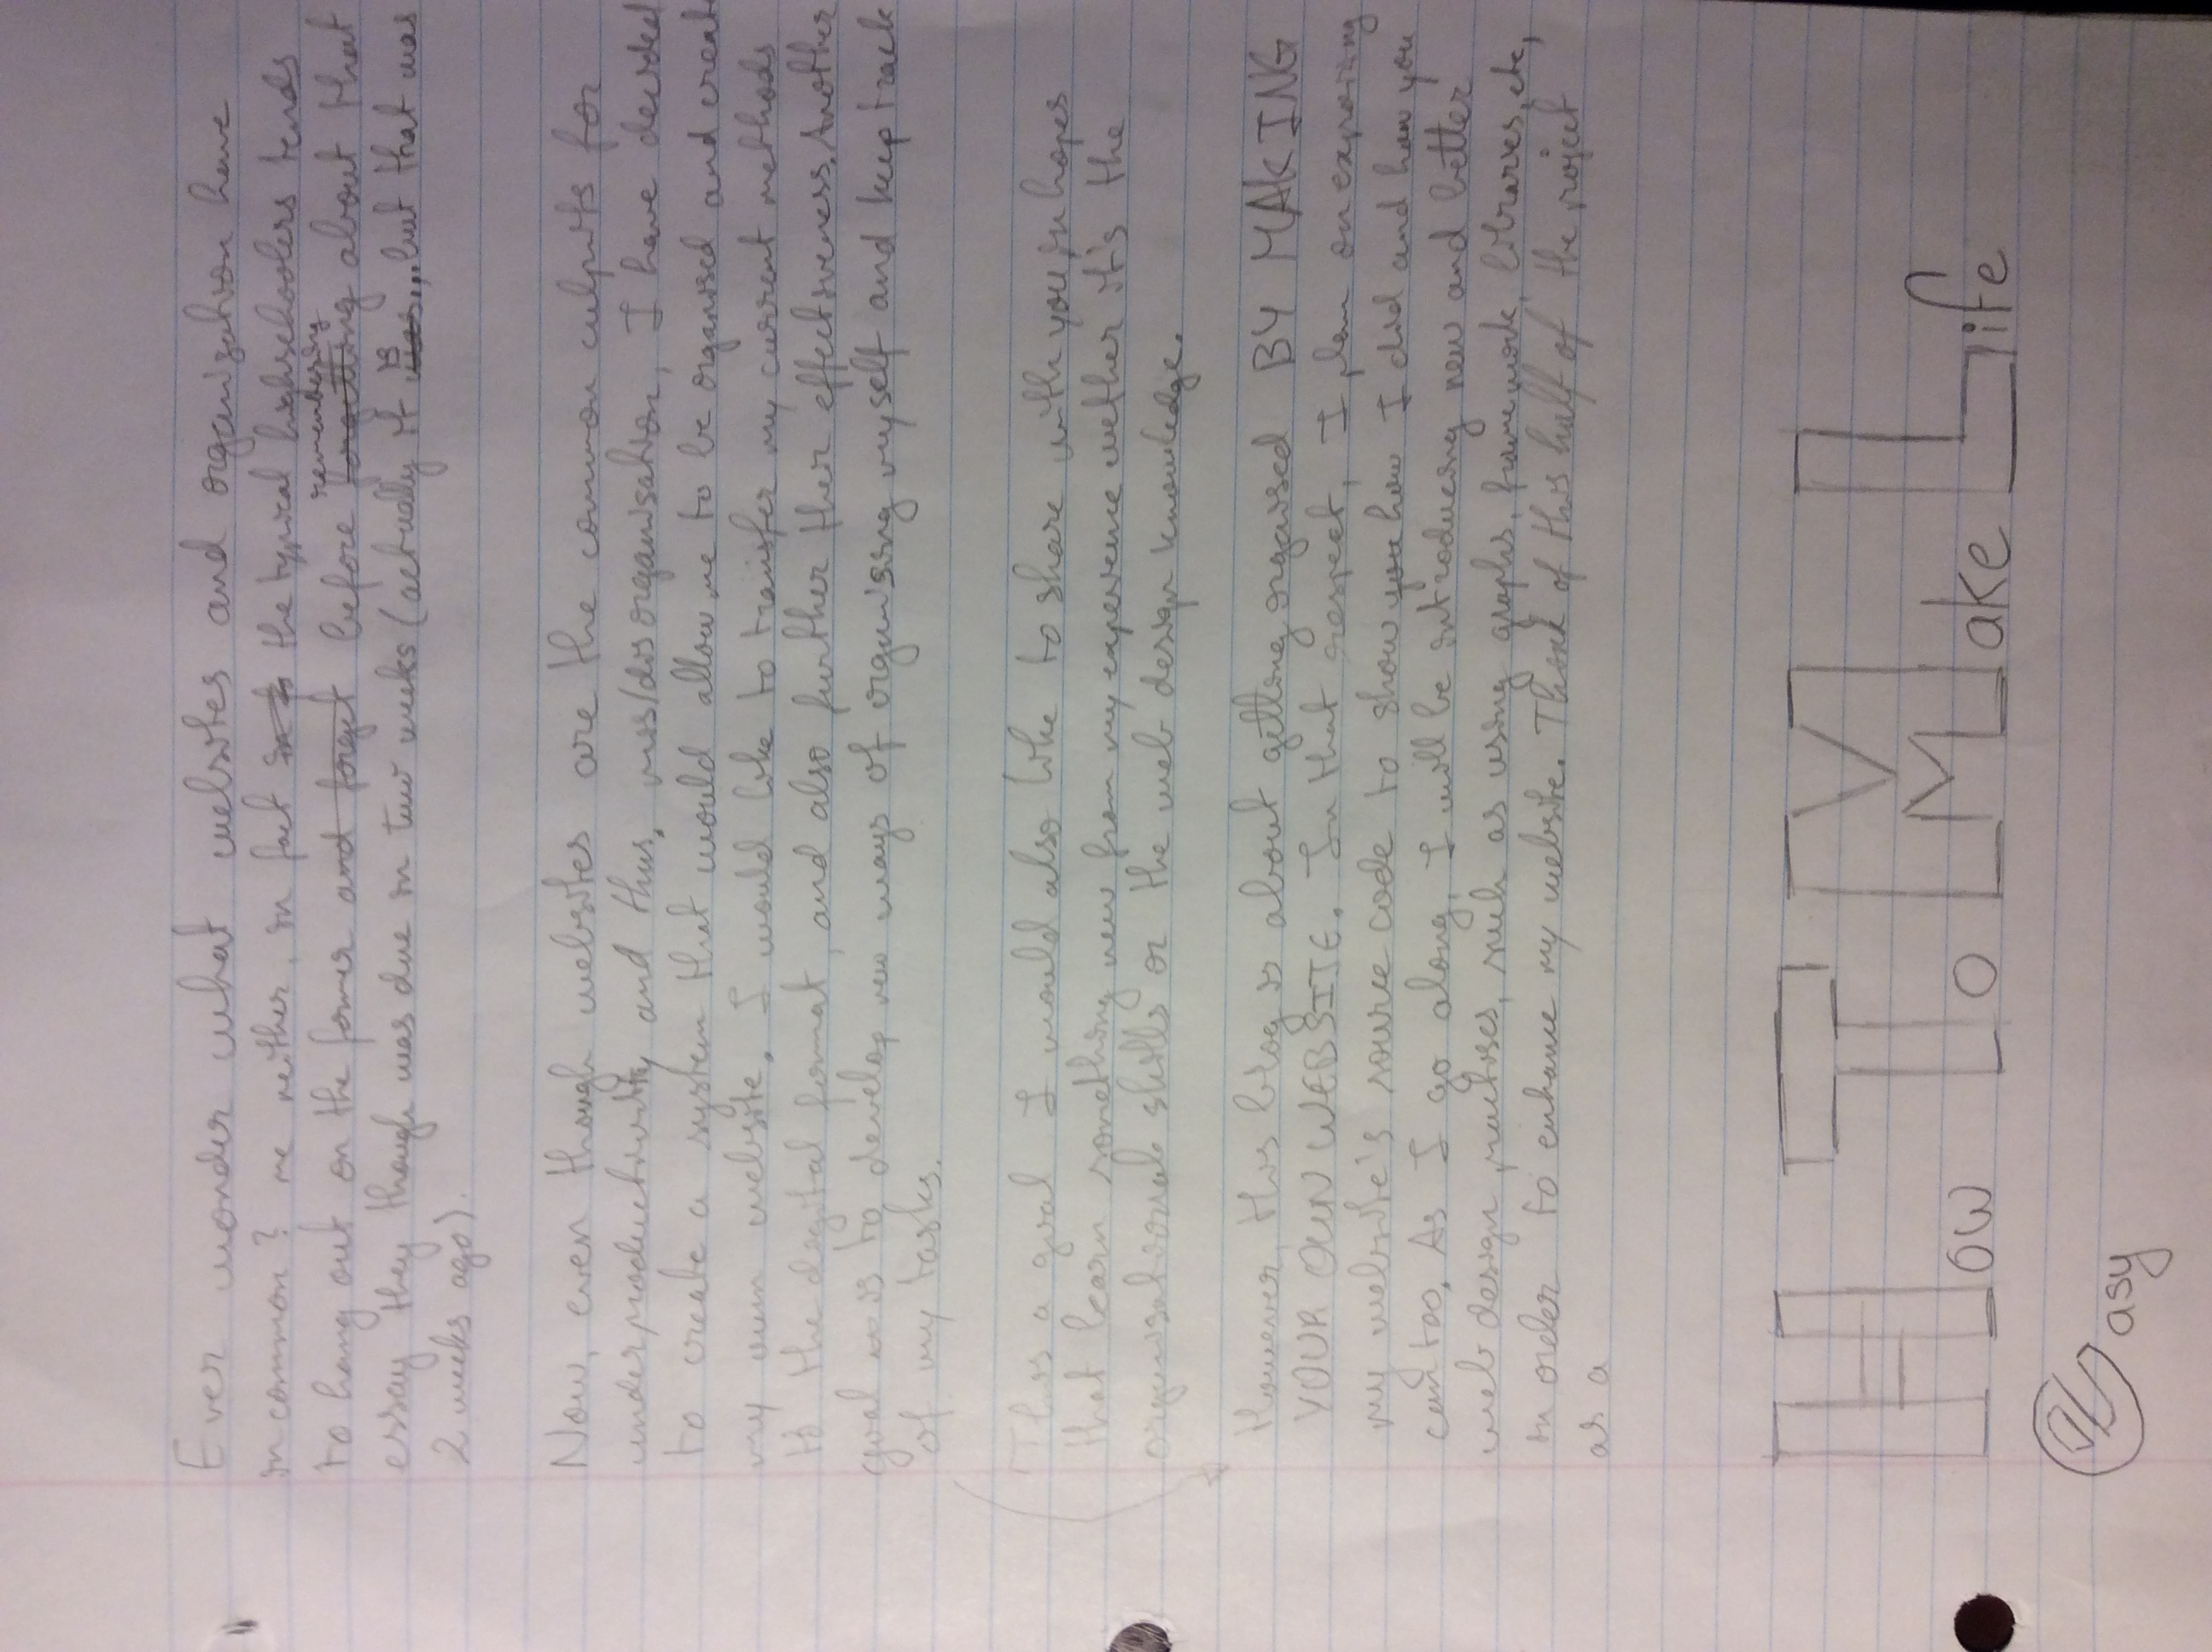 Ever wonder what websites and organization have
in common? me neither, in fact the typical highschoolers tends
to hang out on the former and forget before forgetting remembering about that
essay they though was due in two weeks (actually it was is... but that was
2 weeks ago).
Now, even though websites are the common culprits for
underproductivity and thus, mis/disorganisation, I have decided
to create a system that would allow me to be organised and create
my own website. I would like to transfer my current methods
to the digital format, and also further their effectiveness. Another
goal is to develop new ways of organising myself and keep track
of my tasks.
This a goal I would also like to share with you, in hopes
that learn something new from my experience wether it's the
organisational skills or the web design knowledge.
However, this blog is about getting organised BY MAKING
YOUR OWN WEBSITE. In that respect, I plan on exposing
my website's source code to show you how I did and how you
can too. As I go along, I will be introducing new and better
web design practises, such as using graphs, framework, libraries, etc,
in order to enhance my website. Think of this half of the project
as a
How To Make Life
easy